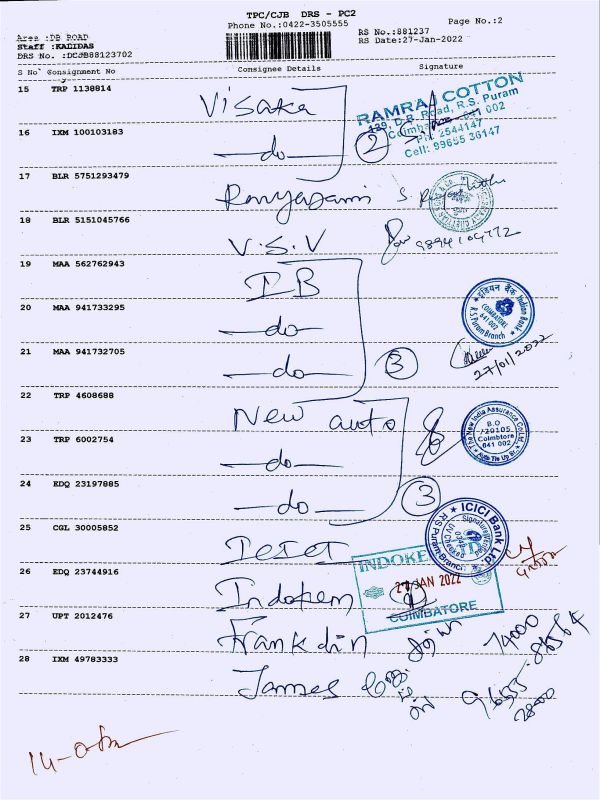 TPC/CJB DRS - PC2
Phone No.:0422-3505555
Page No.:2
Area :DB ROAD
Staff :KADIDAS
DRS No. :DCJB88123702
RS No.:881237
RS Date:27-Jan-2022
S No Consignment No Consignee Details Signature
15 TRP 1138814 Visaka
RAMRAJ COTTON
129, D.B. Road, R.S. Puram
Coimbatore - 641 002
Ph: 2544147
Cell: 99655 36147
16 IXM 100103183 —do— 2
17 BLR 5751293479
18 BLR 5151045766 V.S.V
19 MAA 562762943 IB
इंडियन बैंक Indian Bank
COIMBATORE
641 002
R.S.Puram Branch
20 MAA 941733295 —do—
21 MAA 941732705 —do— 3
27/01/2022
22 TRP 4608688 New auto
The New India Assurance Co.Ltd
B.O
Coimbtore
641 002
23 TRP 6002754 —do—
24 EDQ 23197885 —do— 3
25 CGL 30005852
ICICI Bank Ltd
R S Puram Branch
26 EDQ 23744916 Indokem
INDOKEM LTD
27 JAN 2022
COIMBATORE
27 UPT 2012476 Franklin
28 IXM 49783333 James